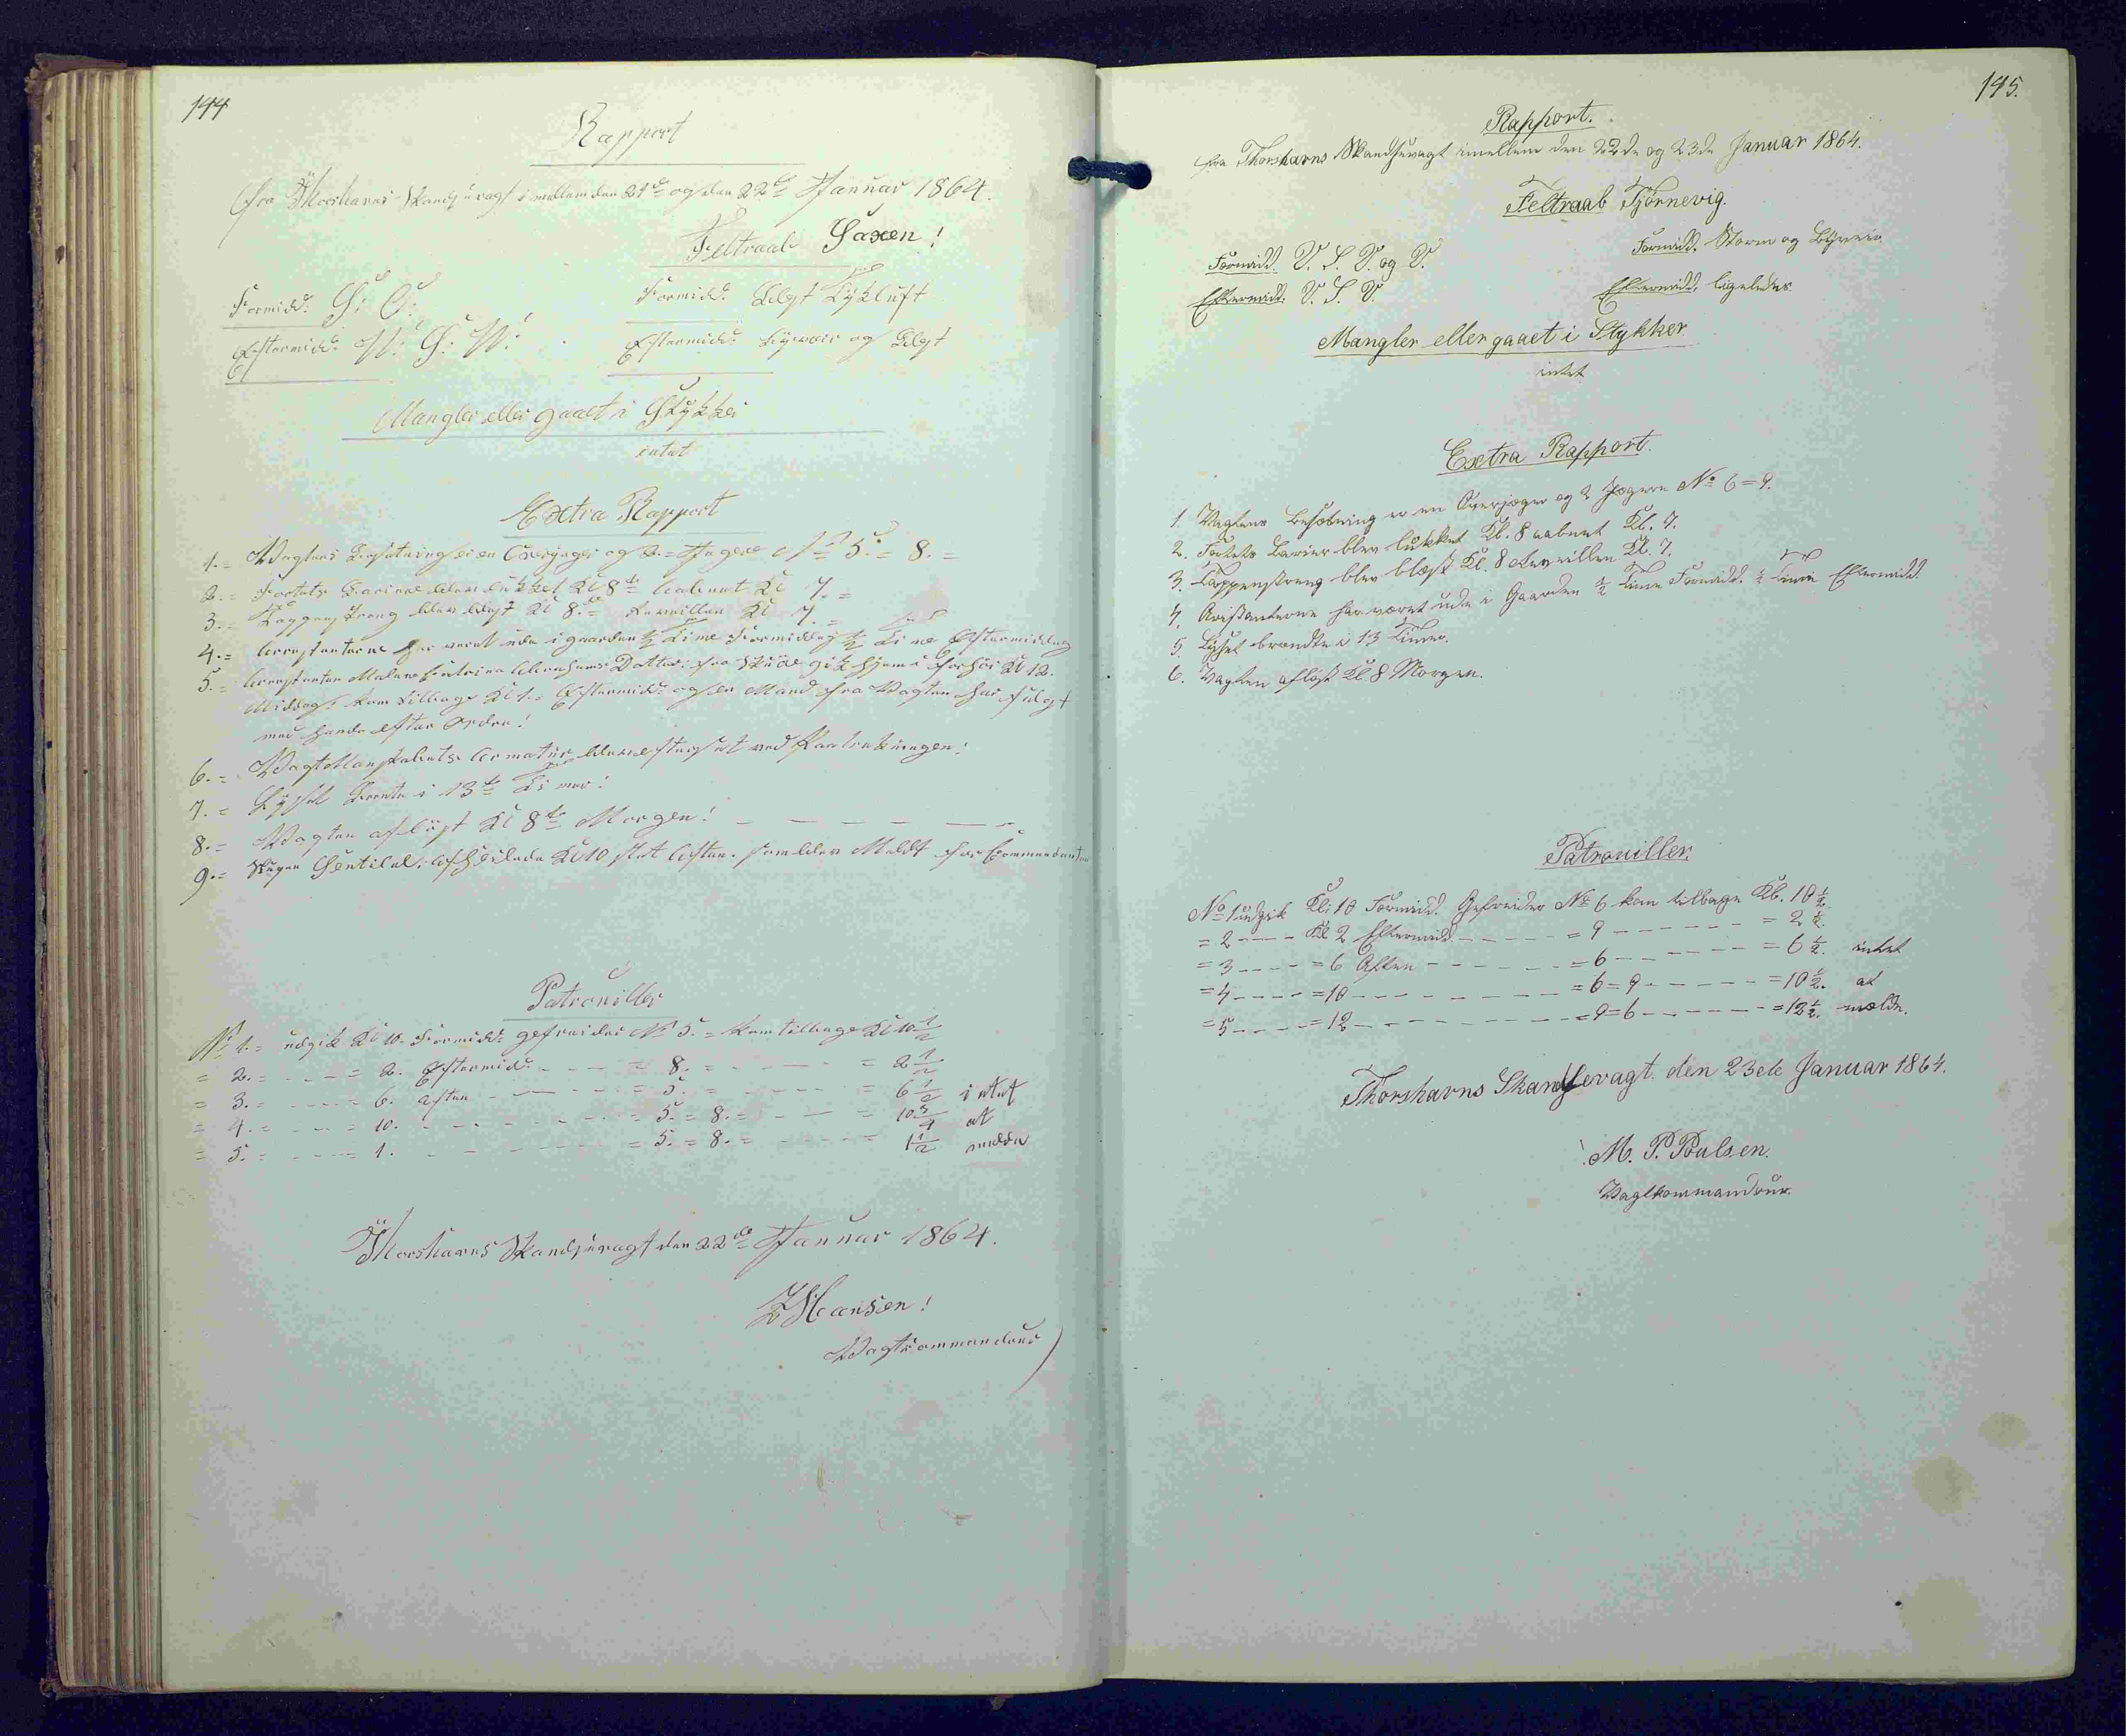 144
Rapport
fra Thorshavns Skandsevagt imellem den 21de og den 22de Januar 1864.
Feltraab Saxen!
Formidd: S: O:
Formidd: Blæst Tykluft
Eftermidd: W: S: W:
Eftermidd: og Blæst
Mangler eller gaaet i Stykker
intet
Extra Rapport
1.= Vagtens Besætning er en Overjæger og 2= Jægere No 5.= 8.=
2.= Fortets Barriere blev lukket Kl 8te aabnet Kl 7.=
3.= Tappenstreng blev blæst Kl 8.= Reveillen Kl 7.=
4.= Arrestanterne har været ude i gaarden ½ Time Formiddag ½ Time Eftermiddag
5.= Arrestanten Malene Abrahams Datter fra gik hjem i Forhør Kl 12.
Middag kom tilbage Kl 1.= Eftermidd: og en Mand fra Vagten har fulgt
med hende efter Order!
6.= Vagtmandskabets Armatur blev efterseet ved
7.= Lyset brente i 13te Timer!
8.= Vagten afløst Kl 8te Morgen!
9.= Kl 10 slet Aften. som blev Meldt for Commandanten
Patrouiller
No 1.= udgik Kl 10. Formidd: gefreider No 5.= kom tilbage Kl 10½
= 2.= - - - = 2. Eftermidd: - - - = 8.= - - - = 2½
= 3.= - - - = 6. Aften - - - = 5.= - - - = 6½ intet
= 4.= - - - = 10. - - - = 5.= 8.= - - - = 10¾ at
= 5.= - - - = 1. - - - = 5.= 8.= - - - = 1½ melde
Thorshavns Skandsevagt den 22de Januar 1864.
Hansen!
Vagtcommandeur
145.
Rapport.
fra Thorshavns Skandsevagt imellem den 22de og 23de Januar 1864.
Feltraab Tjørnevig.
Formidd. V. S. V. og V.
Formidd. Storm og Bygveir
Eftermidd. V. S. V.
Eftermidd. ligeledes
Mangler eller gaaet i Stykker
intet
Extra Rapport.
1. Vagtens Besætning er en Overjæger og 2 Jægere No 6 = 9.
2. Fortets Barier blev lukket Kl. 8 aabnet Kl. 7.
3. Tappenstreng blev blæst Kl. 8 Reveillen Kl. 7.
4. Aristanterne har været ude i Gaarden ½ Time Formidd. ½ Time Eftermidd.
5. Lyset brændte i 13 Timer.
6. Vagten afløst Kl 8 Morgen.
Patrouiller.
No 1 udgik Kl. 10 Formidd. Gefreider No 6 kom tilbage Kl. 10½.
= 2 - - - - Kl 2 Eftermidd - - - - = 9 - - - - = 2½.
= 3 - - - - = 6 Aften - - - - = 6 - - - - = 6½. intet
= 4 - - - - = 10 - - - - = 6 = 9 - - - - = 10½. at
= 5 - - - - = 12 - - - - = 9 = 6 - - - - = 12½. melde.
Thorshavns Skandsevagt. den 23de Januar 1864.
M. P. Poulsen.
Vagtkommandeur.